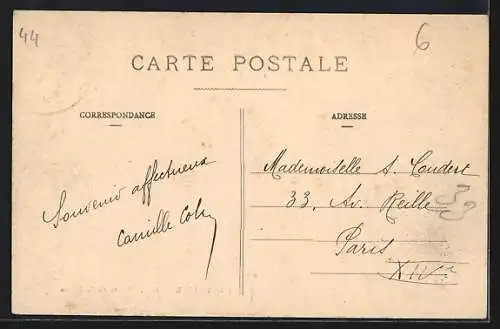 44
6
CARTE POSTALE
CORRESPONDANCE
ADRESSE
Souvenir affectueux
Camille
Mademoiselle S. Coudert
33, Av. Reille
33
Paris
XIVe